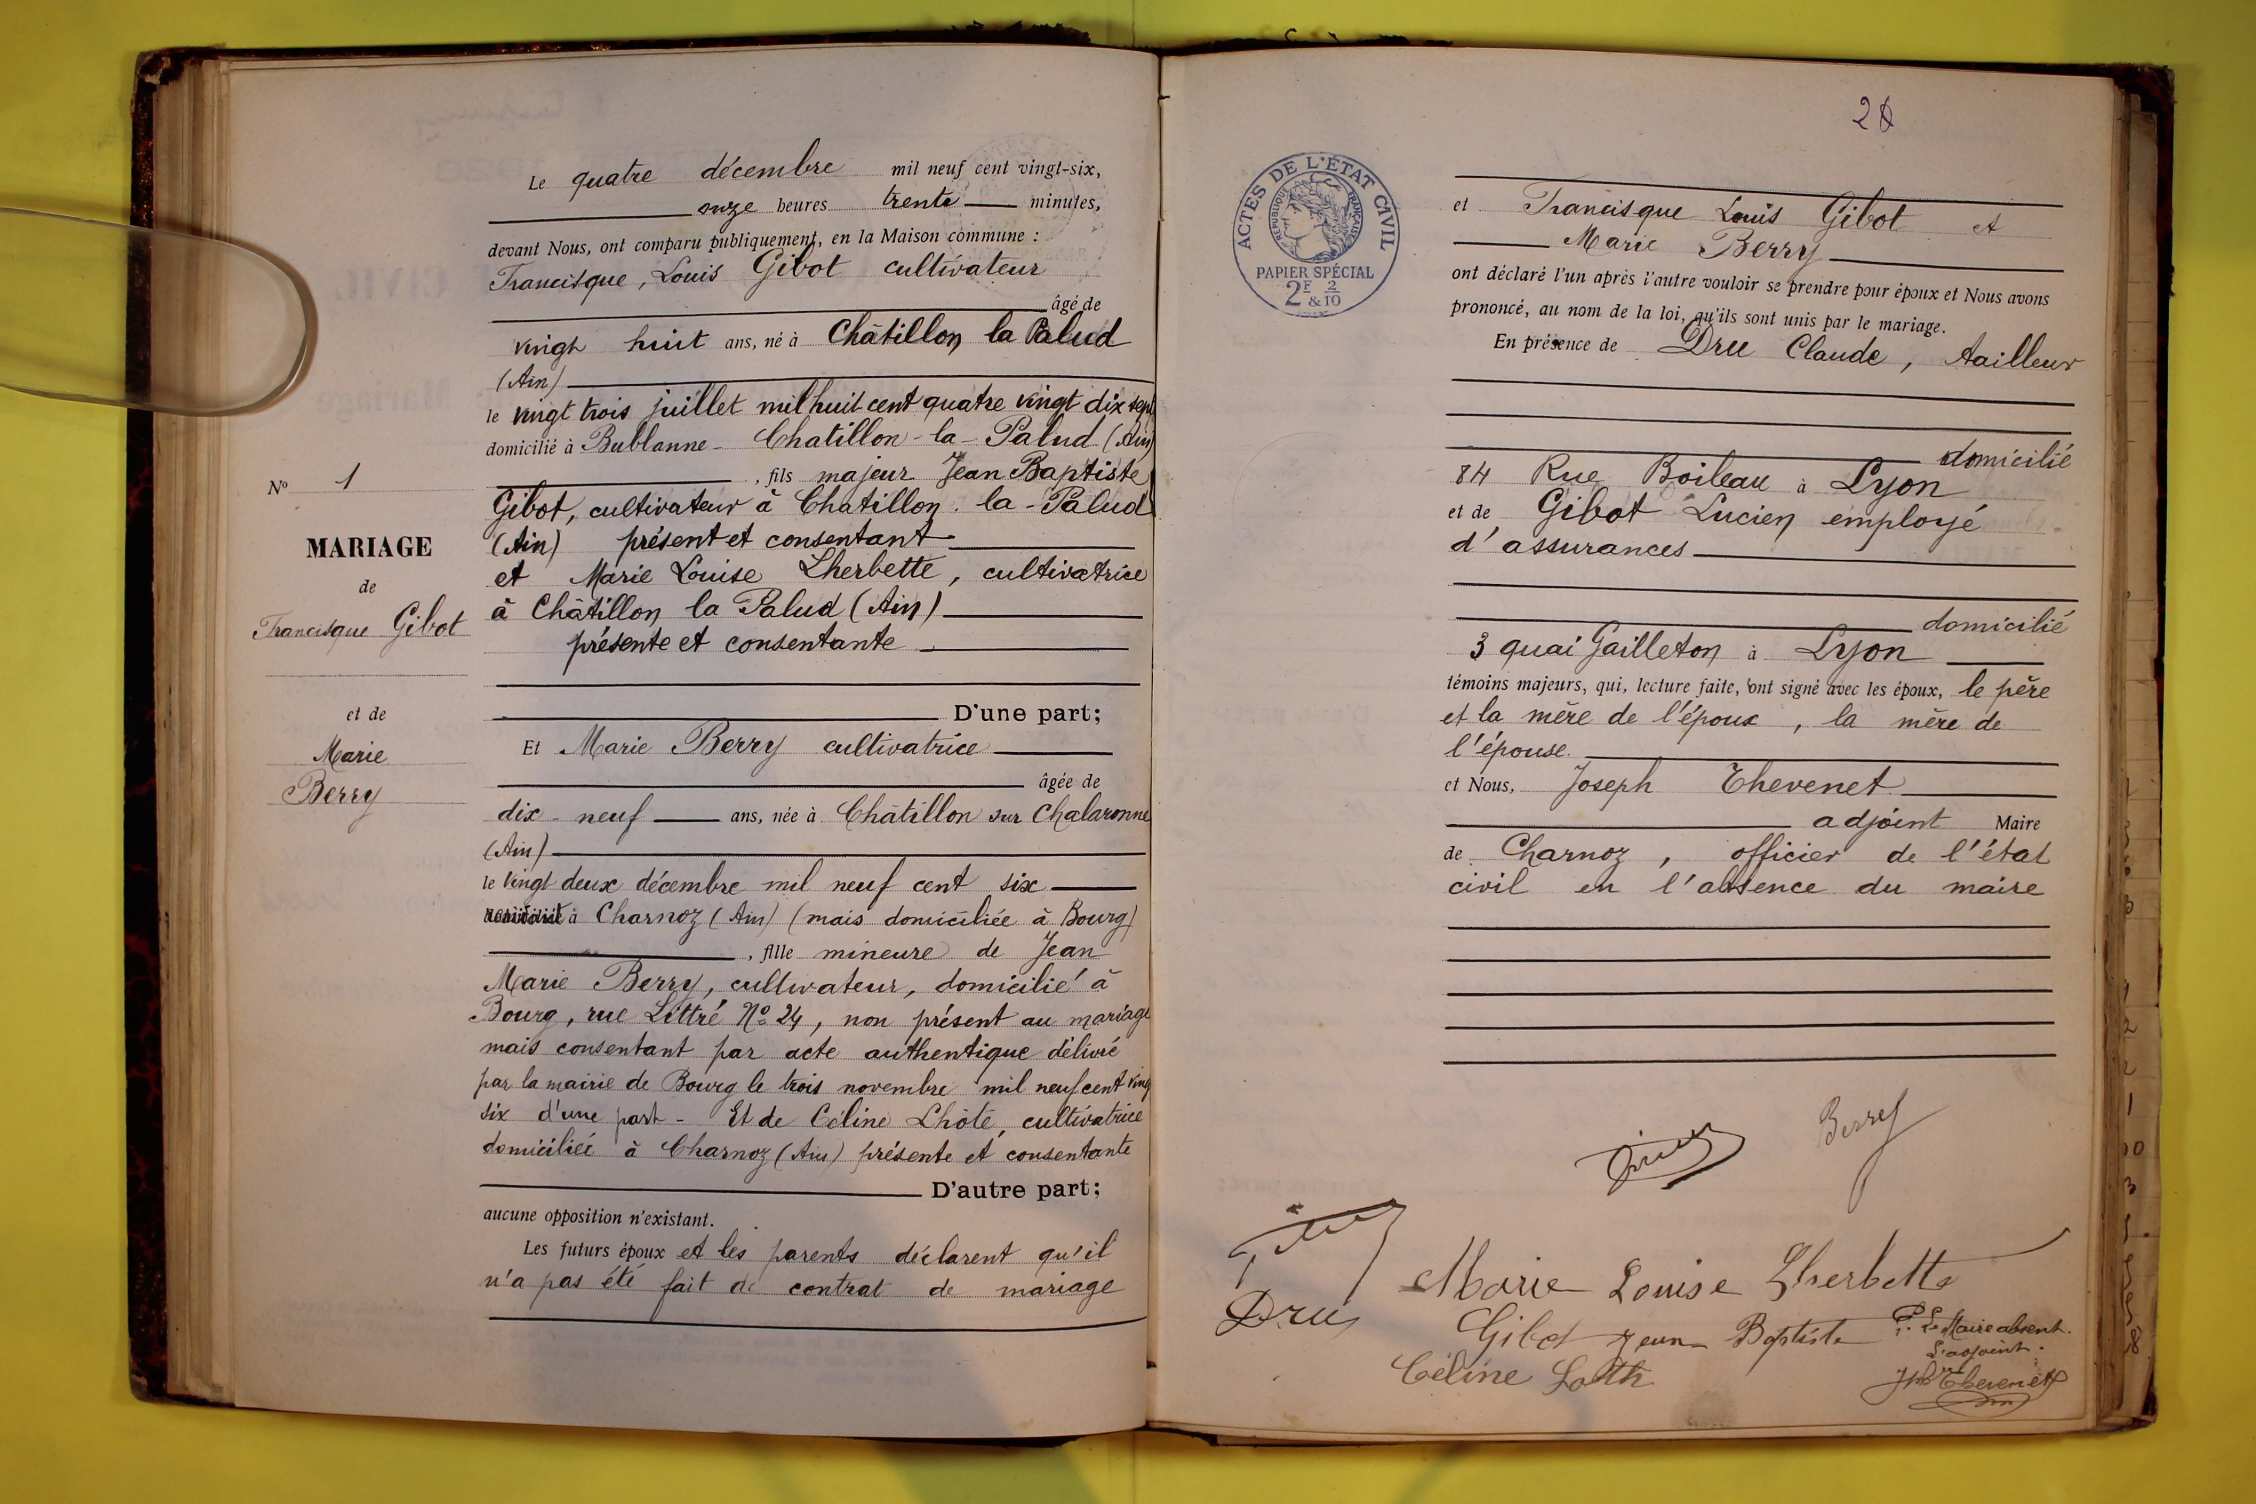 Le quatre décembre mil neuf cent vingt-six,
onze heures trente minutes,
devant Nous, ont comparu publiquement, en la Maison commune :
Francisque, Louis Gibot cultivateur
âgé de
vingt huit ans, né à Châtillon la Palud
(Ain)
le vingt trois juillet mil huit cent quatre vingt dix sept
domicilié à Bublanne - Chatillon-la-Palud (Ain)
, fils majeur Jean Baptiste
Gibot, cultivateur à Chatillon-la-Palud
(Ain) présent et consentant
et Marie Louise Lherbette, cultivatrice
à Châtillon la Palud (Ain)
présente et consentante
D'une part;
Et Marie Berry cultivatrice
âgée de
dix-neuf ans, née à Châtillon sur Chalaronne
(Ain)
le vingt deux décembre mil neuf cent six
à Charnoz (Ain) (mais domiciliée à Bourg)
, fille mineure de Jean
Marie Berry, cultivateur, domicilié à
Bourg, rue Littré No 24, non présent au mariage
mais consentant par acte authentique délivré
par la mairie de Bourg le trois novembre mil neuf cent ving
six d'une part - Et de Céline Lhôte, cultivatrice
domiciliée à Charnoz (Ain) présente et consentante
D'autre part;
aucune opposition n'existant.
Les futurs époux et les parents déclarent qu'il
n'a pas été fait de contrat de mariage
No 1
MARIAGE
de
Francisque Gibot
et de
Marie
Berry
2
ACTES DE L'ÉTAT CIVIL
RÉPUBLIQUE FRANÇAISE
PAPIER SPÉCIAL
2F & 2/10
et Francisque Louis Gibot et
Marie Berry
ont déclaré l'un après l'autre vouloir se prendre pour époux et Nous avons
prononcé, au nom de la loi, qu'ils sont unis par le mariage.
En présence de Dru Claude, tailleur
domicilié
84 Rue Boileau à Lyon
et de Gibot Lucien employé
d'assurances
domicilié
3 quai Gailleton à Lyon
témoins majeurs, qui, lecture faite, ont signé avec les époux, le père
et la mère de l'époux, la mère de
l'épouse
et Nous, Joseph Thevenet
adjoint Maire
de Charnoz, officier de l'état
civil en l'absence du maire
Berry
Marie Louise Lherbette
Dru
Gibot Jean Baptiste
P. Le Maire absent.
L'adjoint.
Céline Loth
Jph Thevenet